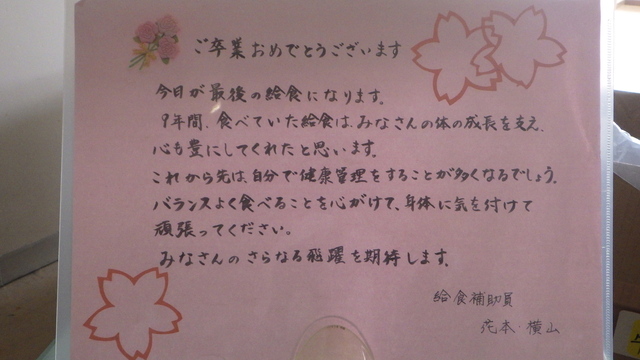 ご卒業おめでとうございます
今日が最後の給食になります。
9年間、食べていた給食は、みなさんの体の成長を支え、
心も豊にしてくれたと思います。
これから先は、自分で健康管理をすることが多くなるでしょう。
バランスよく食べることを心がけて、身体に気を付けて
頑張ってください。
みなさんのさらなる飛躍を期待します。
給食補助員
花本・横山